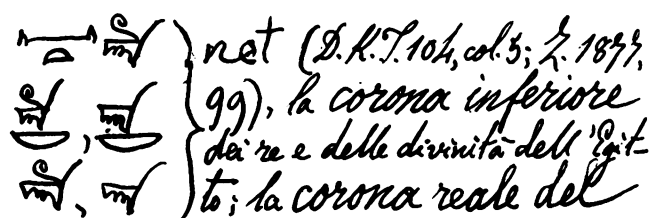 net (D.K.T. 104, col. 5; Z. 1877,
99), la corona inferiore
dei re e delle divinità dell'Egit-
to; la corona reale del